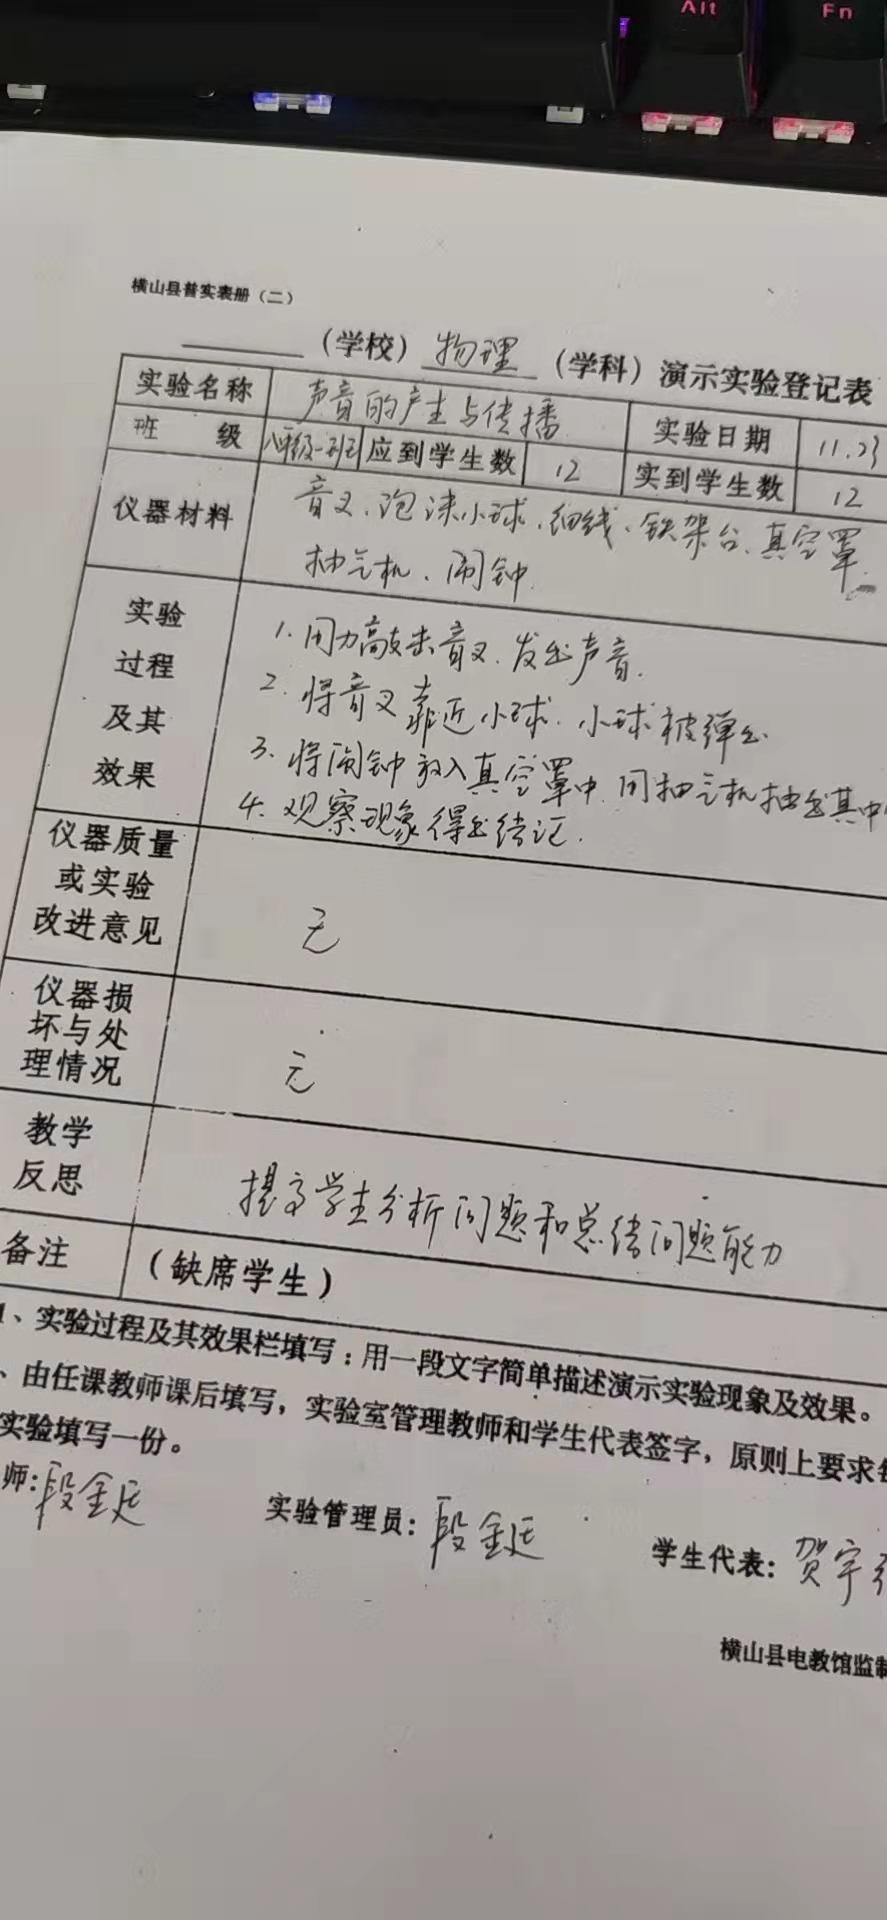 Alt Fn
横山县普实表册（二）
（学校）物理（学科）演示实验登记表
实验名称 声音的产生与传播 实验日期 11.23
班 级 八年级一班 应到学生数 12 实到学生数 12
仪器材料 音叉、泡沫小球、细线、铁架台、真空罩
抽气机、闹钟
实验
过程
及其
效果
1. 用力敲击音叉，发出声音.
2. 将音叉靠近小球，小球被弹出.
3. 将闹钟放入真空罩中，用抽气机抽出其中
4. 观察现象得出结记.
仪器质量
或实验
改进意见
无
仪器损
坏与处
理情况
无
教学
反思
提高学生分析问题和总结问题能力
备注 （缺席学生）
1、实验过程及其效果栏填写：用一段文字简单描述演示实验现象及效果。
、由任课教师课后填写，实验室管理教师和学生代表签字，原则上要求
实验填写一份。
师：段金廷 实验管理员：段金廷 学生代表：贺宇
横山县电教馆监制